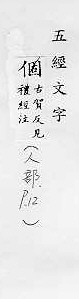 五經文字
個
古賀反見
禮經注
(人部.
P.12)